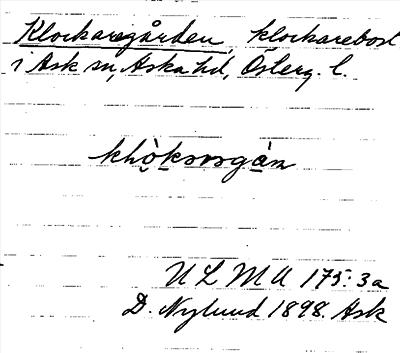 Klockaregården, klockarebost
i Ask sn, Aska hd, Österg. l.
U L M A 175: 3a
D. Nylund 1898. Ask